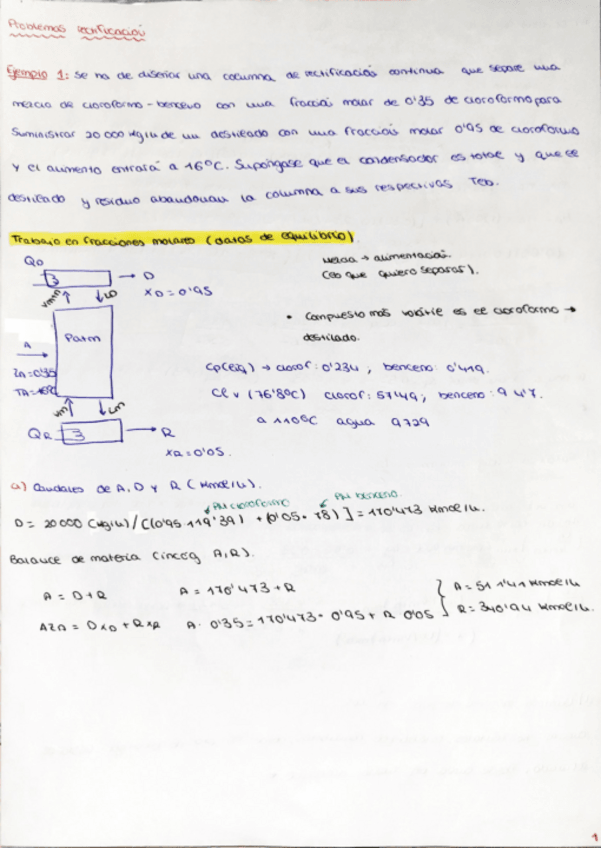 Problemas rectificación
Ejemplo 1: Se ha de diseñar una columna de rectificación continua que separe una
mezcla de cloroformo-benceno con una fracción molar de 0'35 de cloroformo para
suministrar 20 000 kg/h de un destilado con una fracción molar 0'95 de cloroformo
y el alimento entrará a 16ºC. Supóngase que el condensador es total y que el
destilado y residuo abandonan la columna a sus respectivas Teb.
Trabajo en fracciones molares (datos de equilibrio).
QD
3
D
XD = 0'95
Vm+1
LD
Mezcla → alimentación.
(lo que quiero separar).
• Compuesto más volátil es el cloroformo →
destilado.
A
Patm
ZA=0'35
TA=16ºC
Cp(liq) → clorof: 0'234 ; benceno: 0'419.
(76'8ºC) clorof: ; benceno: 94'7.
a 110ºC agua 9729
Vm
Lm
QR
3
R
XR = 0'05.
a) Caudales de A, D y R (kmol/h).
PM cloroformo
PM benceno.
D = 20 000 (kg/h) / [(0'95·119'39) + (0'05·78)] = 170'473 kmol/h.
Balance de materia (incóg A, R).
A = D + R
A = 170'473 + R
A = 511'41 kmol/h
AZA = DXD + RXR
A · 0'35 = 170'473 · 0'95 + R 0'05
R = 340'94 kmol/h.
1